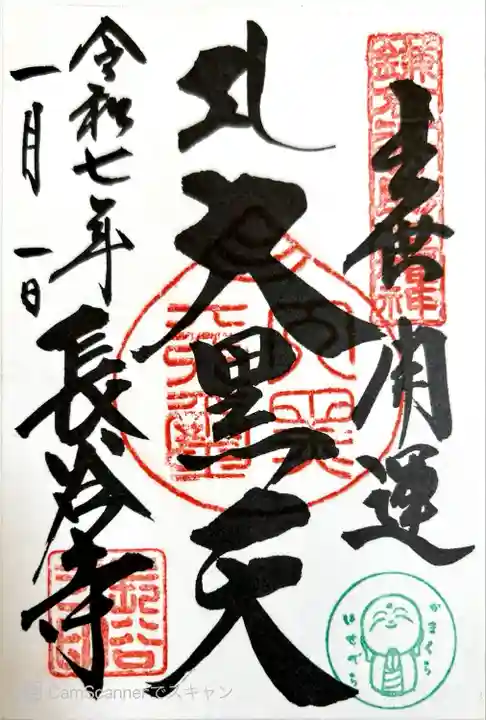 出世開運
大黒天
令和七年
一月一日
長谷寺
かまくら
はせでら
CamScannerでスキャン